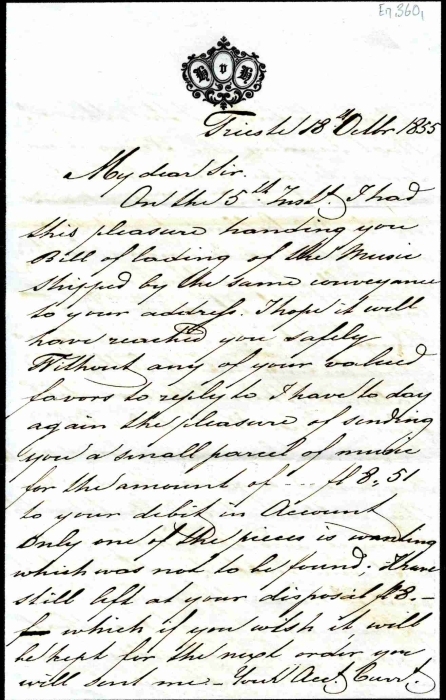 En 360,
H v H
Trieste 18th Octbr. 1855
My dear Sir.
On the 5th Inst. I had
this pleasure handing you
Bill of lading of the Music
shipped by the same conveyance
to your address. I hope it will
have reached you safely
Without any of your valued
favors to reply to I have to day
again the pleasure of sending
you a small parcel of music
for the amount of --- fl 8,51
to your debit in Account
Only one of the pieces is wanting
which was not to be found; I have
still left at your disposal f 8.-
which if you wish it will
be kept for the next order you
will send me - Your Acct. Currt.